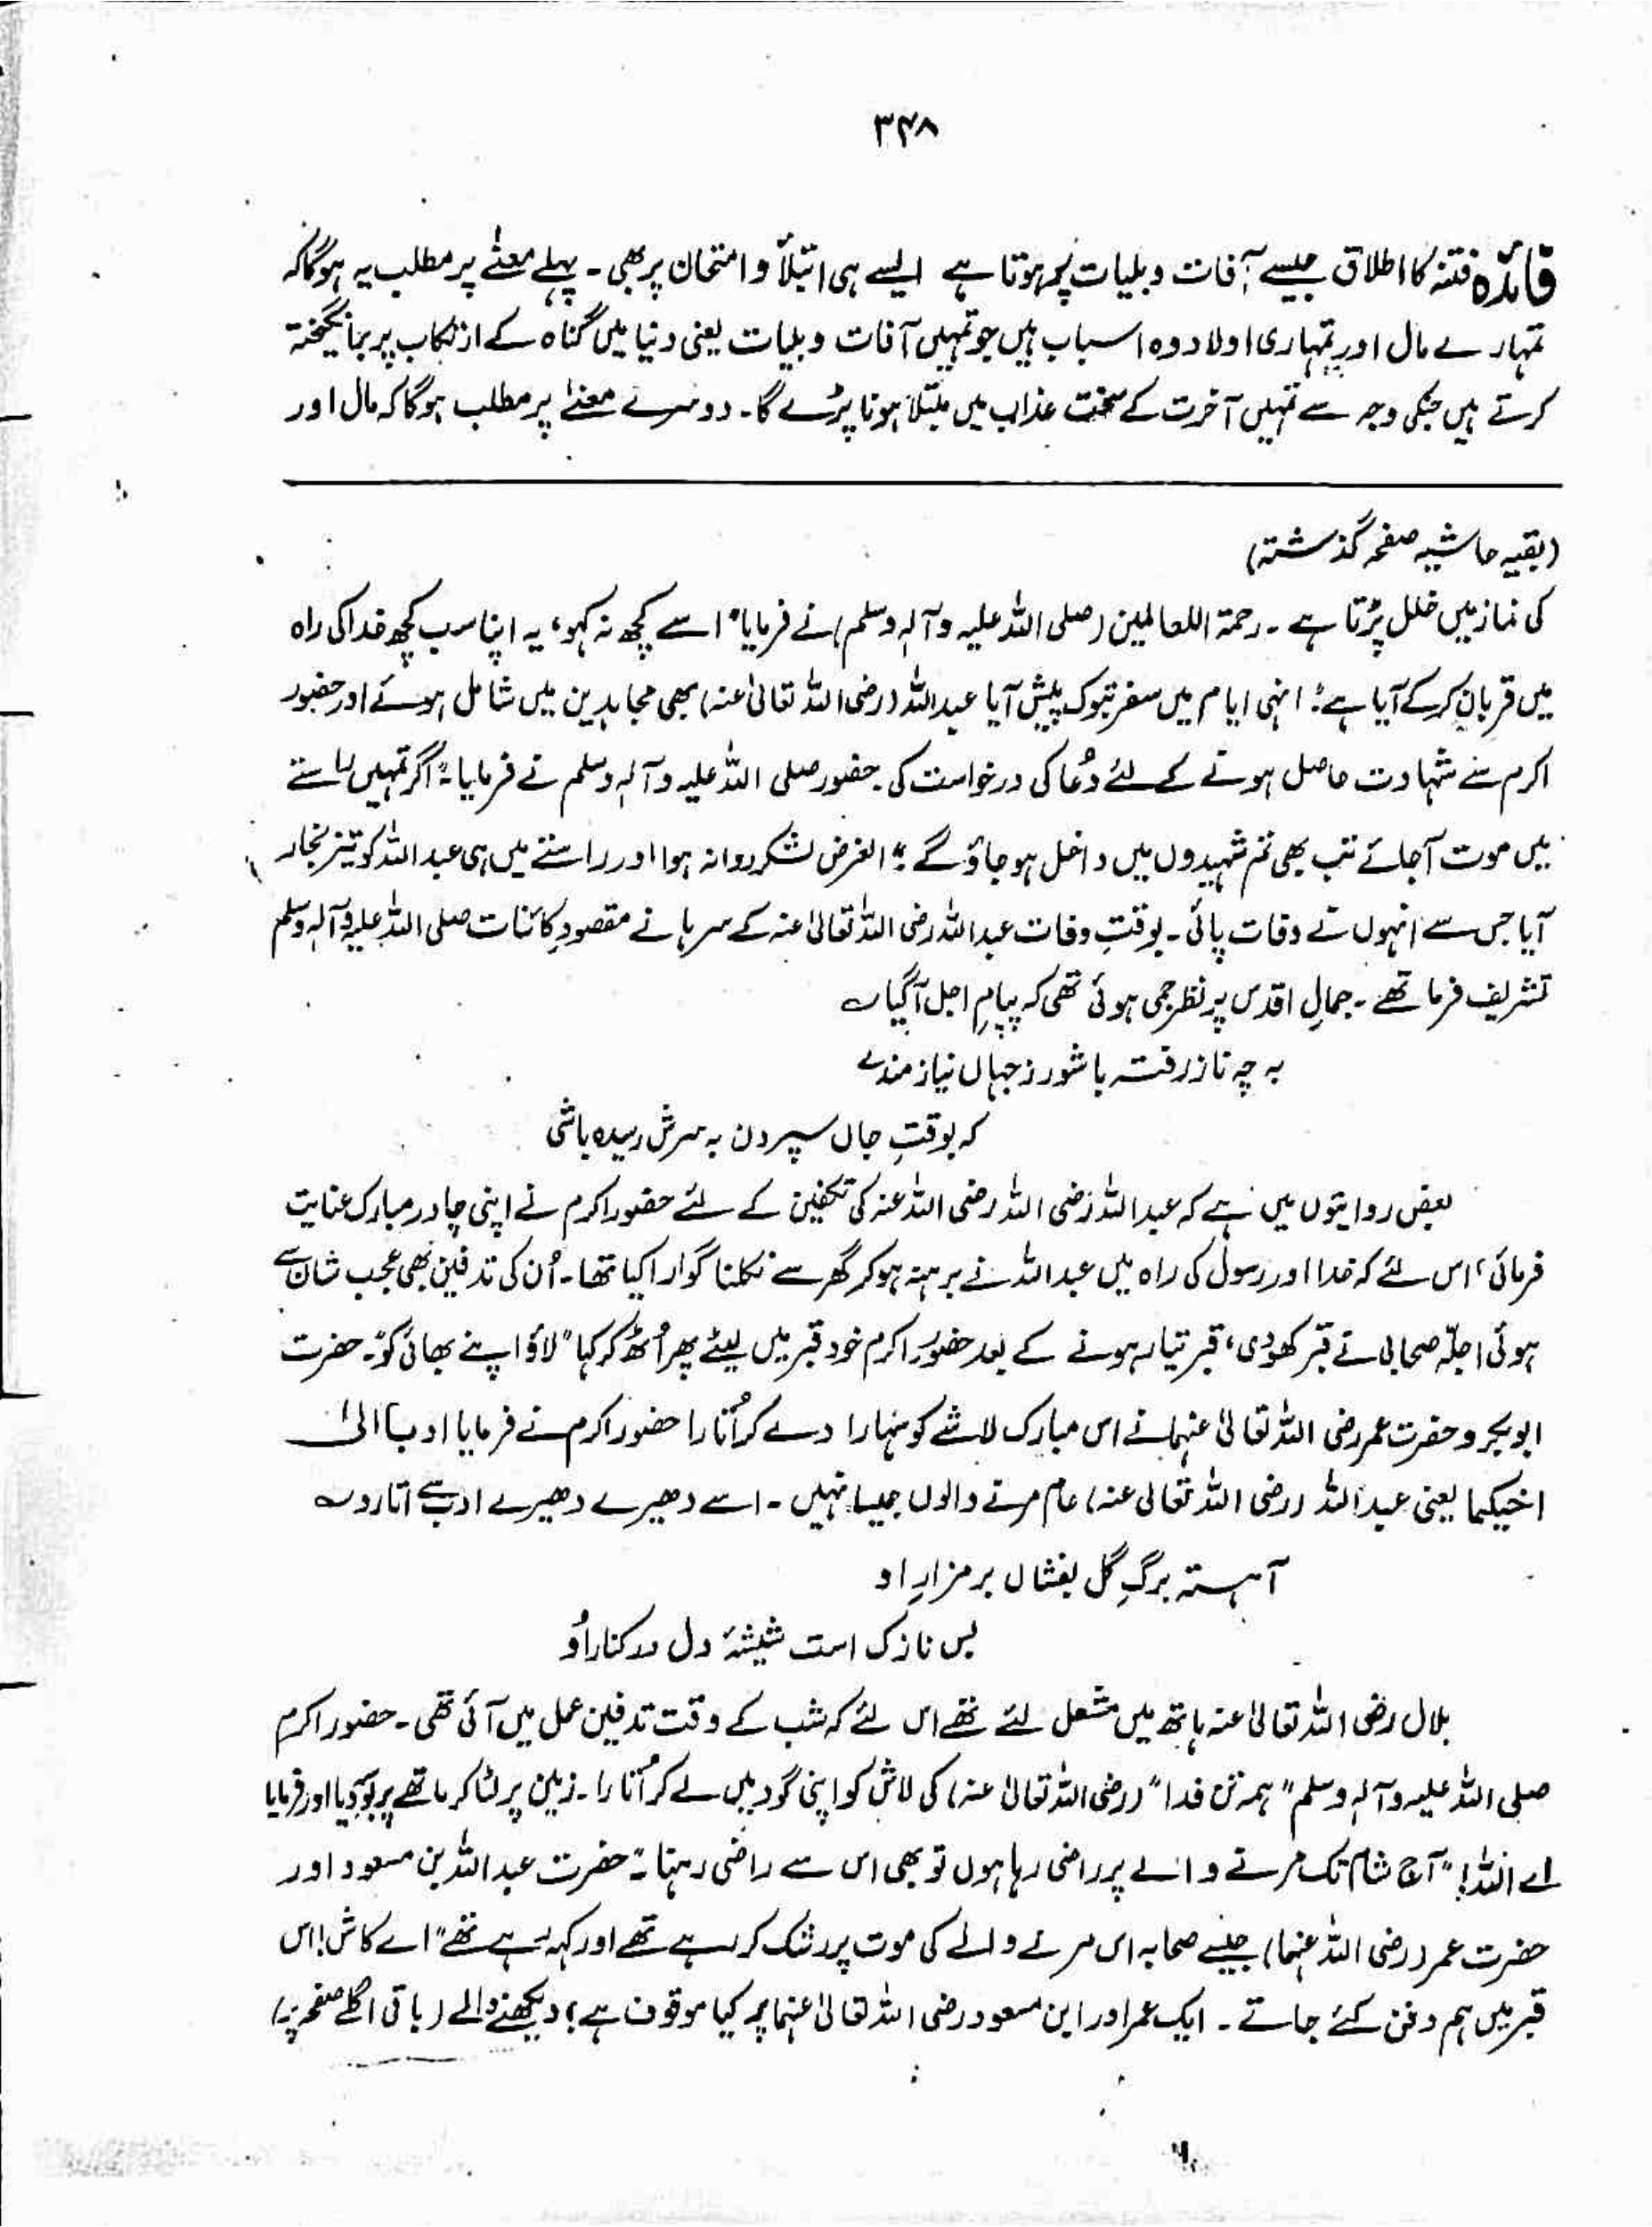 ۳۴۸
فائدہ فتنہ کا اطلاق جیسے آفات و بلیات پر ہوتا ہے ایسے ہی ابتلاً و امتحان پر بھی ۔ پہلے معنےٰ پر مطلب یہ ہوگا کہ
تمہارے مال اور تمہاری اولاد وہ اسباب ہیں جو تمہیں آفات و بلیات یعنی دنیا میں گناہ کے ارتکاب پر برانگیختہ
کرتے ہیں جنکی وجہ سے تمہیں آخرت کے سخت عذاب میں مبتلا ہونا پڑے گا۔ دوسرے معنےٰ پر مطلب ہوگا کہ مال اور
(بقیہ حاشیہ صفحہ گذشتہ)
کی نماز میں خلل پڑتا ہے ۔ رحمۃ اللعالمین (صلی اللہ علیہ وآلہ وسلم) نے فرمایا" اسے کچھ نہ کہو، یہ اپنا سب کچھ خدا کی راہ
میں قربان کرکے آیا ہے" انہی ایام میں سفر تبوک پیش آیا عبداللہ (رضی اللہ تعالیٰ عنہ) بھی مجاہدین میں شامل ہوئے اور حضور
اکرم سے شہادت حاصل ہونے کے لئے دُعا کی درخواست کی حضور صلی اللہ علیہ وآلہ وسلم نے فرمایا۔" اگر تمہیں راستے
میں موت آجائے تب بھی تم شہیدوں میں داخل ہوجاؤ گے" الغرض لشکر روانہ ہوا اور راستے میں ہی عبداللہ کو تیز بخار
آیا جس سے انہوں نے وفات پائی ۔ بوقتِ وفات عبداللہ رضی اللہ تعالیٰ عنہ کے سرہانے مقصودِ کائنات صلی اللہ علیہ وآلہ وسلم
تشریف فرما تھے ۔ جمالِ اقدس پر نظر جمی ہوئی تھی کہ پیامِ اجل آگیا ؎
بہ چہ ناز رفتہ باشد ز جہاں نیاز مندے
کہ بوقتِ جاں سپردن بہ سرش رسیدہ باشی
بعض روایتوں میں ہے کہ عبداللہ رضی اللہ رضی اللہ عنہ کی تکفین کے لئے حضور اکرم نے اپنی چادر مبارک عنایت
فرمائی، اس لئے کہ خدا اور رسول کی راہ میں عبداللہ نے برہنہ ہوکر گھر سے نکلنا گوارا کیا تھا ۔ اُن کی تدفین بھی عجب شان سے
ہوئی اجلّہ صحابی نے قبر کھودی، قبر تیار ہونے کے بعد حضور اکرم خود قبر میں لیٹے پھر اُٹھ کر کہا "لاؤ اپنے بھائی کو"۔ حضرت
ابوبکر و حضرت عمر رضی اللہ تعالیٰ عنہما نے اس مبارک لاشے کو سہارا دے کر اُتارا حضور اکرم نے فرمایا ادبا الیٰ
اخیکما یعنی عبداللہ (رضی اللہ تعالیٰ عنہ) عام مرنے والوں جیسا نہیں ۔ اسے دھیرے دھیرے ادب سے اتارو ؎
آہستہ برگِ گل بفشاں بر مزارِ او
بس نازک است شیشۂ دل در کنارِ اُو
بلال رضی اللہ تعالیٰ عنہ ہاتھ میں مشعل لئے تھے اس لئے کہ شب کے وقت تدفین عمل میں آئی تھی ۔ حضور اکرم
صلی اللہ علیہ وآلہ وسلم "ہمہ تن فدا" (رضی اللہ تعالیٰ عنہ) کی لاش کو اپنی گود میں لے کر اُتارا ۔ زمین پر لٹا کر ماتھے پر بوسہ دیا اور فرمایا
اے اللہ! "آج شام تک مرنے والے پر راضی رہا ہوں تو بھی اس سے راضی رہنا"۔ حضرت عبداللہ بن مسعود اور
حضرت عمر (رضی اللہ عنہما) جیسے صحابہ اس مرنے والے کی موت پر رشک کر رہے تھے اور کہہ رہے تھے" اے کاش! اس
قبر میں ہم دفن کئے جاتے ۔ ایک عمر اور ابن مسعود رضی اللہ تعالیٰ عنہما پر کیا موقوف ہے؟ دیکھنے والے (باقی اگلے صفحہ پر)